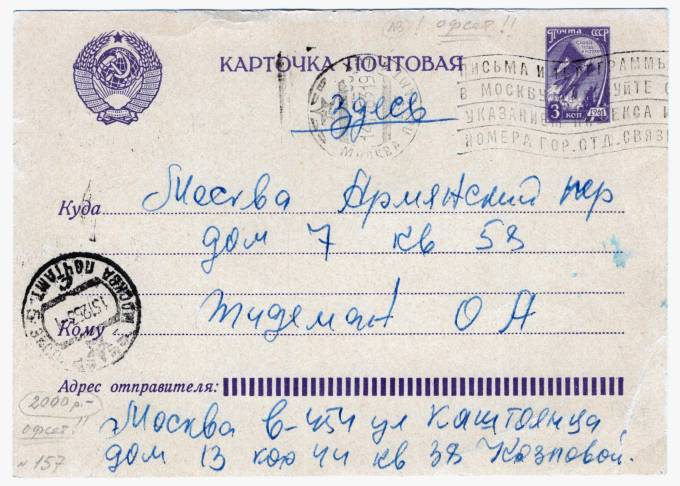 13 ! офсет!!
КАРТОЧКА ПОЧТОВАЯ
ПОЧТА СССР
3 КОП. 1961
ПИСЬМА И ТЕЛЕГРАММЫ
В МОСКВУ
УКАЗАНИЕМ ИНДЕКСА И
НОМЕРА ГОР. ОТД. СВЯЗИ
МОСКВА
Здесь
Москва Армянский пер
Куда
дом 7 кв 58
МОСКВА ПОЧТАМТ
Тидеман О А
Кому
Адрес отправителя:
2000 р.–
офсет!!
N 157
Москва В-454 ул Каштоянца
дом 13 кор 4 кв 38 Козловой.